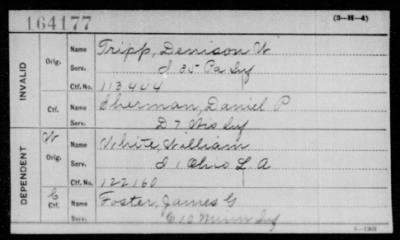 164177
(3—H—4)
INVALID
Orig.
Name Tripp, Denison W
Serv. I 35 Pa Inf
Ctf. No. 113404
Ctf.
Name Sherman, Daniel P
Serv. D 7 Wis Inf
DEPENDENT
W
Orig.
Name White, William
Serv. I 1 Ohio L A
Ctf. No. 122160
C
Ctf.
Name Foster, James G
Serv. E 10 Minn Inf